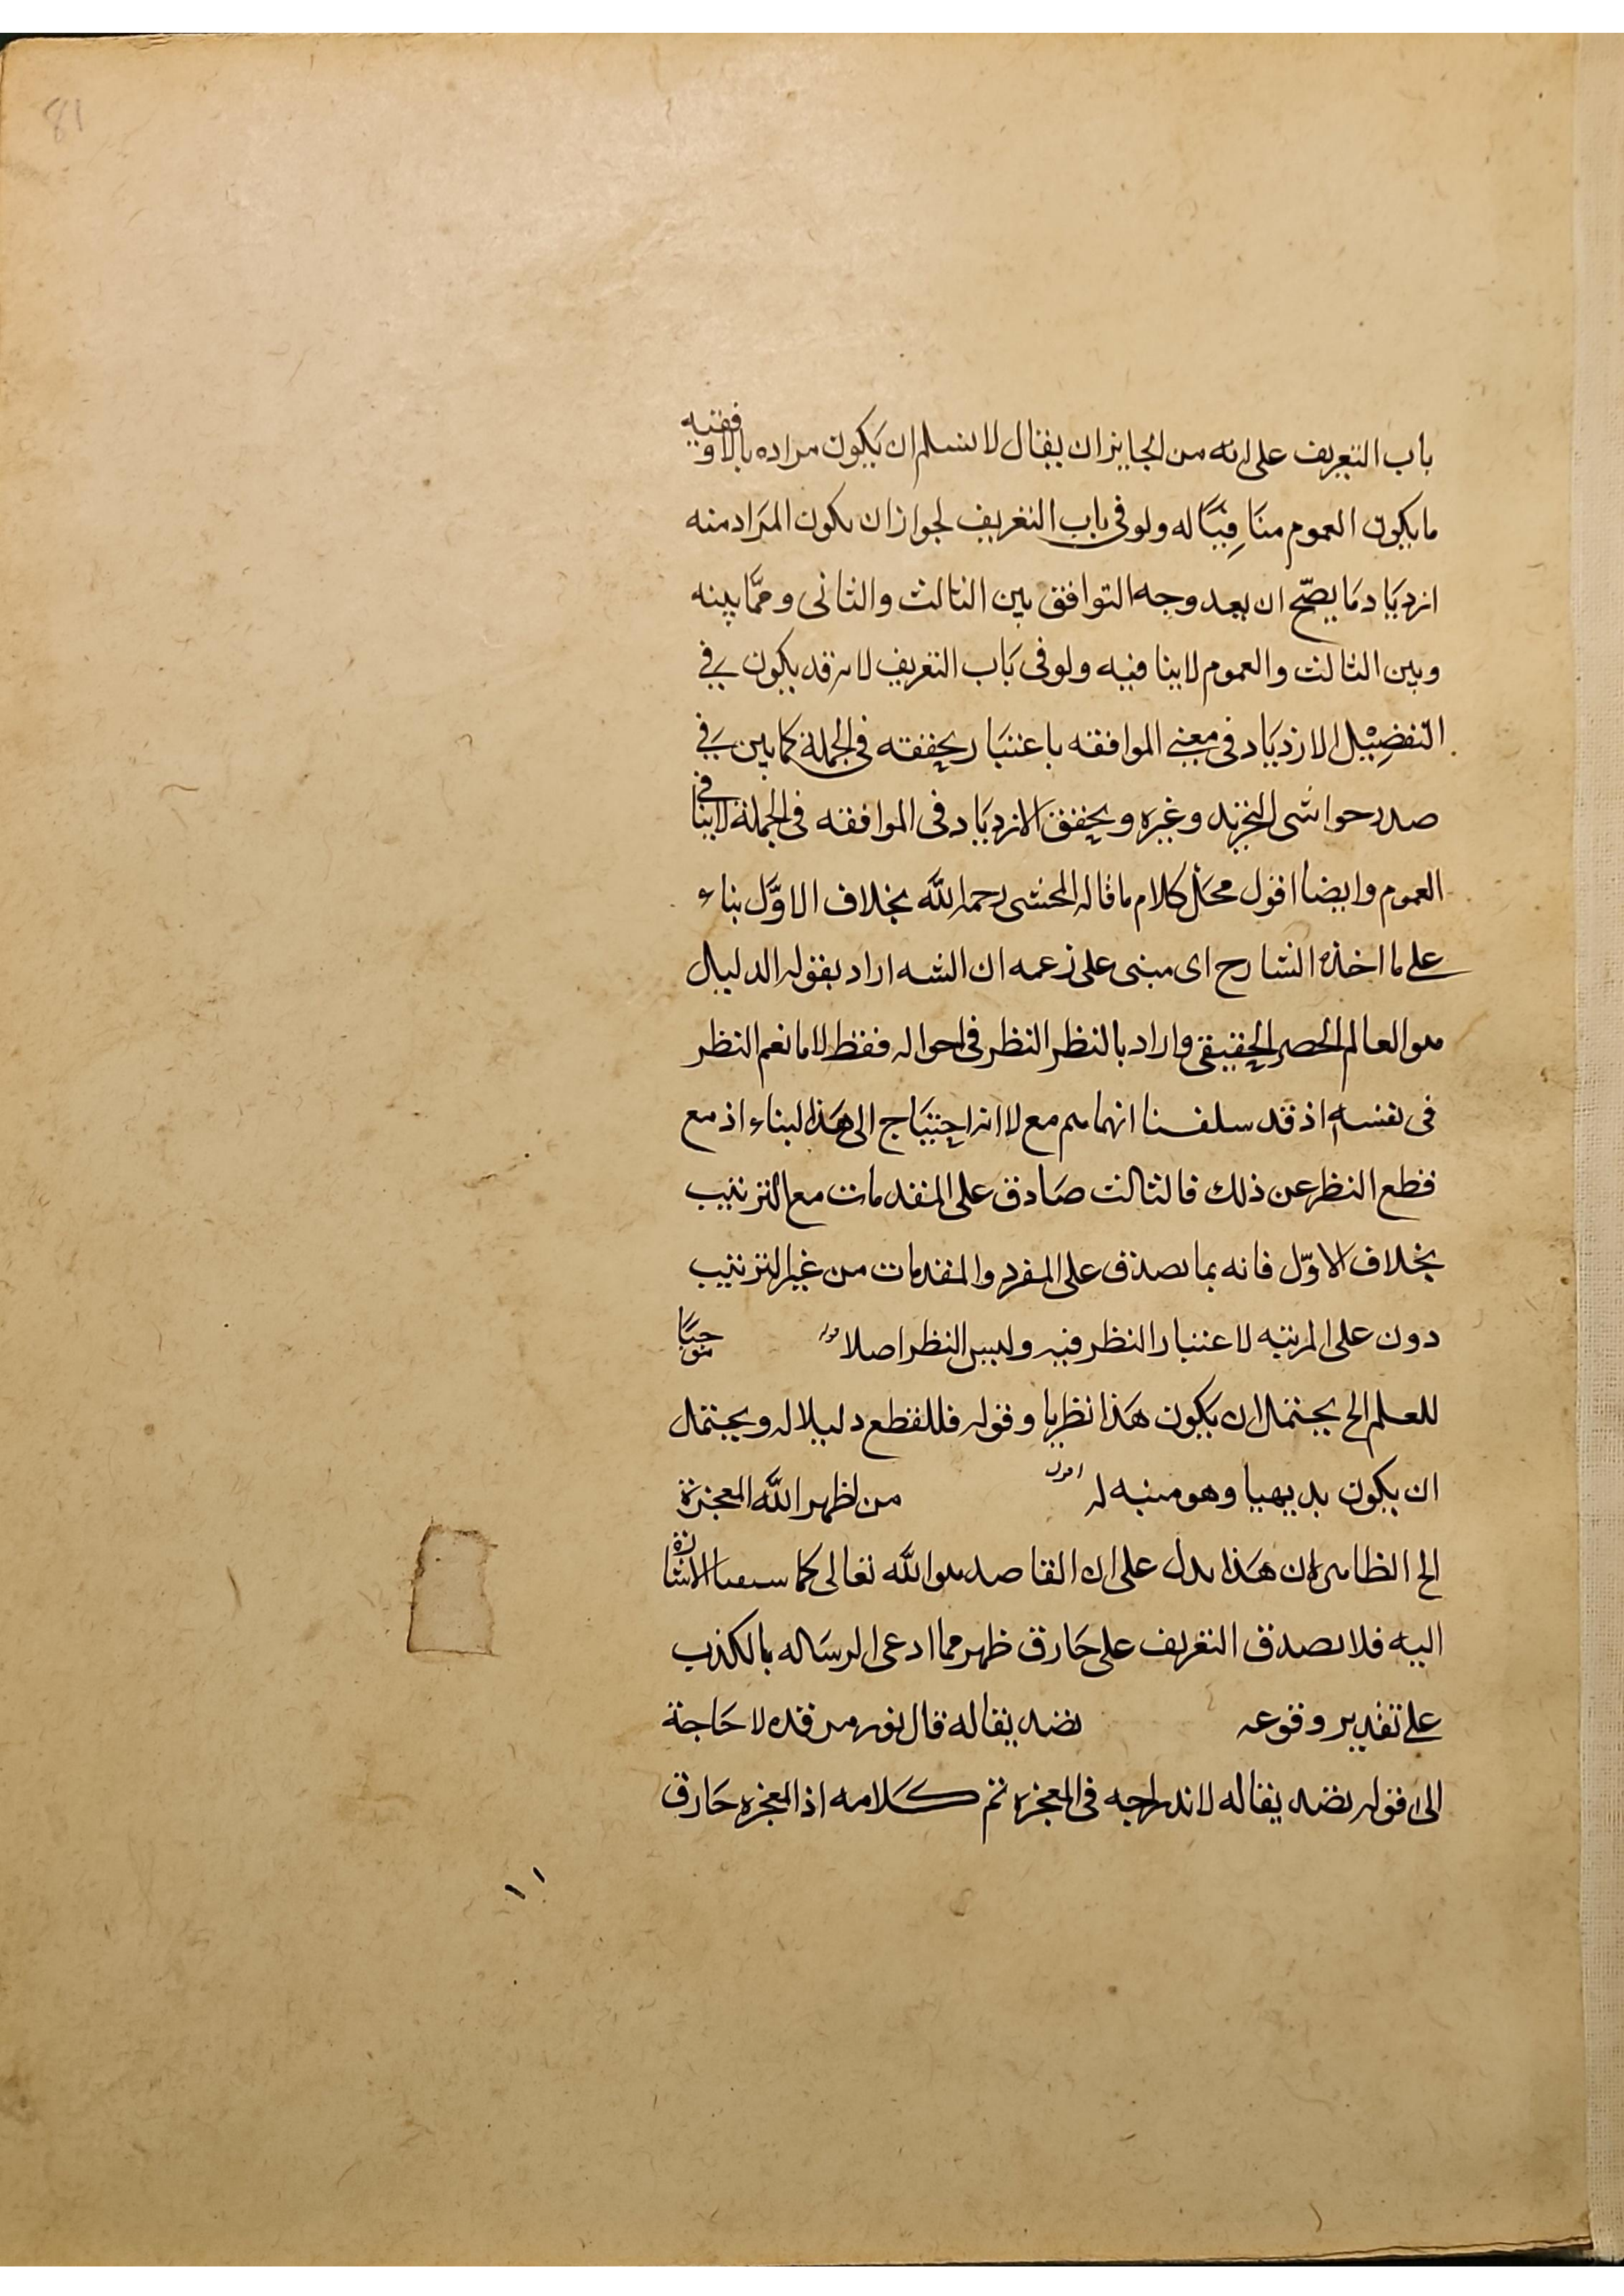 81
باب التعريف على انه من الجايز ان يقال لا نسلم ان يكون مراده بالاوفقيه
ما يكون العموم منَافِيًا له ولو فى باب التعريف لجواز ان يكون المرَاد منه
ازديَاد مَا يصحّ ان يعد وجه التوافق بين الثالث والثانى وممَّا بينه
وبين الثالث والعموم لا ينافيه ولو فى بَاب التعريف لانه قد يكون فى
التفضِيْل الازديَاد فى معنى الموافقه باعتبَار تحققه فى الجملة كما بين فى
صدر حواشى التجريد وغيره وتحقق الازديَاد فى الموافقه فى الجملة لا ينافى
العموم وايضا اقول محَل كلام ما قاله المحشى رحمه الله بخلاف الاوّل بناء
على ما اخذه الشارح اى مبنى على زعمه ان الشه اراد بقوله الدليل
هو العالم الحصر الحقيقى واراد بالنظر النظر فى احواله فقط لا ما نعم النظر
فى نفسه اذ قد سلفنا انهما مم مع لا انه احتيَاج الى هَذا البناء اذ مع
قطع النظر عن ذلك فالثالث صَادق على المقدمات مع الترتيب
بخلاف الاوّل فانه بما يصدق على المفرد والمقدمات من غير الترتيب
دون على المرتبه لا عتبار النظر فيه وليس النظر اصلا قوله موجبًا
للعلم الخ يحتمل ان يكون هَذا نظريا وقوله فللقطع دليلا له ويحتمل
ان يكون بديهيا وهو منبه له اقول من اظهر الله المعجزة
الخ الظاهر ان هَذا يدل على ان القاصد هو الله تعالى كما الاشارة
اليه فلا يصدق التعريف على خَارق ظهر مما ادعى الرسَاله بالكذب
على تقدير وقوعه نضد يقاله قال نور مرقده لا حَاجة
الى قوله نضد يقاله لاندراجه فى المعجزه تم كَلامه اذ المعجزه خَارق
١١